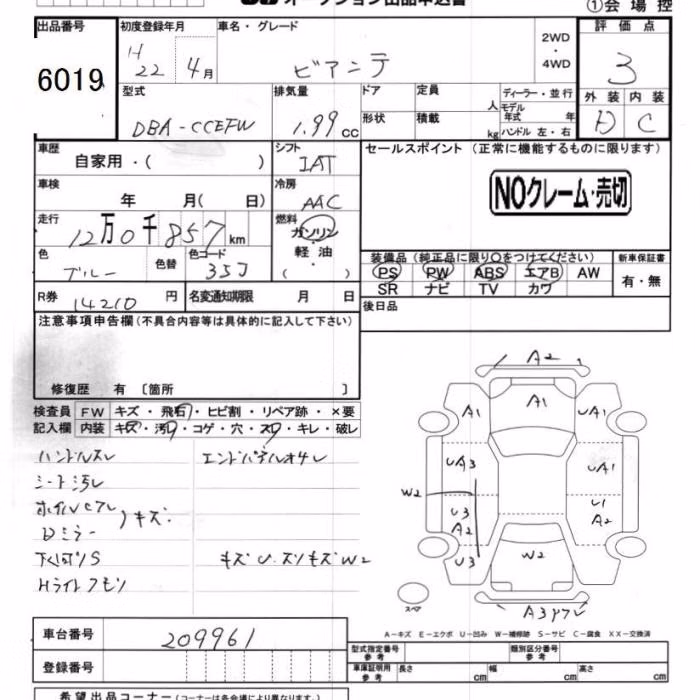 オークション出品申込書
①会場控
出品番号
6019
初度登録年月
H
22 4月
車名・グレード
ビアンテ
2WD
・
4WD
評価点
3
外装 内装
D C
型式
DBA-CCEFW
排気量
1.99 cc
ドア
形状
定員
人
積載
kg
ディーラー・並行
モデル
年式 年
ハンドル 左・右
車歴
自家用・( )
シフト
IAT
車検
年 月( 日)
冷房
AAC
走行
12万0千857km
燃料
ガソリン
軽油
( )
色
ブルー
色替
色コード
35J
R券
14210 円
名変通知期限 月 日
セールスポイント (正常に機能するものに限ります)
NOクレーム・売切
装備品(純正品に限り○をつけてください)
PS PW ABS エアB AW
SR ナビ TV カワ
新車保証書
有・無
後日品
注意事項申告欄(不具合内容等は具体的に記入して下さい)
修復歴 有 〔箇所 〕
検査員
記入欄
FW キズ・飛石・ヒビ割・リペア跡・×要
内装 キズ・汚れ・コゲ・穴・スレ・キレ・破レ
ハンドルスレ
シート汚レ
キズ
Dミラー
下(サビ)S
Hライトクモリ
エンドパネルオサレ
キズ U.スリキズ W2
A2
A1
A1
UA1
UA3
UA1
W2
U3
A2
U1
A2
U3
W2
スペア
A-キズ E-エクボ U-凹み W-補修跡 S-サビ C-腐食 XX-交換済
車台番号
209961
登録番号
型式指定番号
参考
類別区分番号
参考
車庫証明用
参考
長さ cm 幅 cm 高さ cm
希望出品コーナー (コーナーは各会場により異なります。)